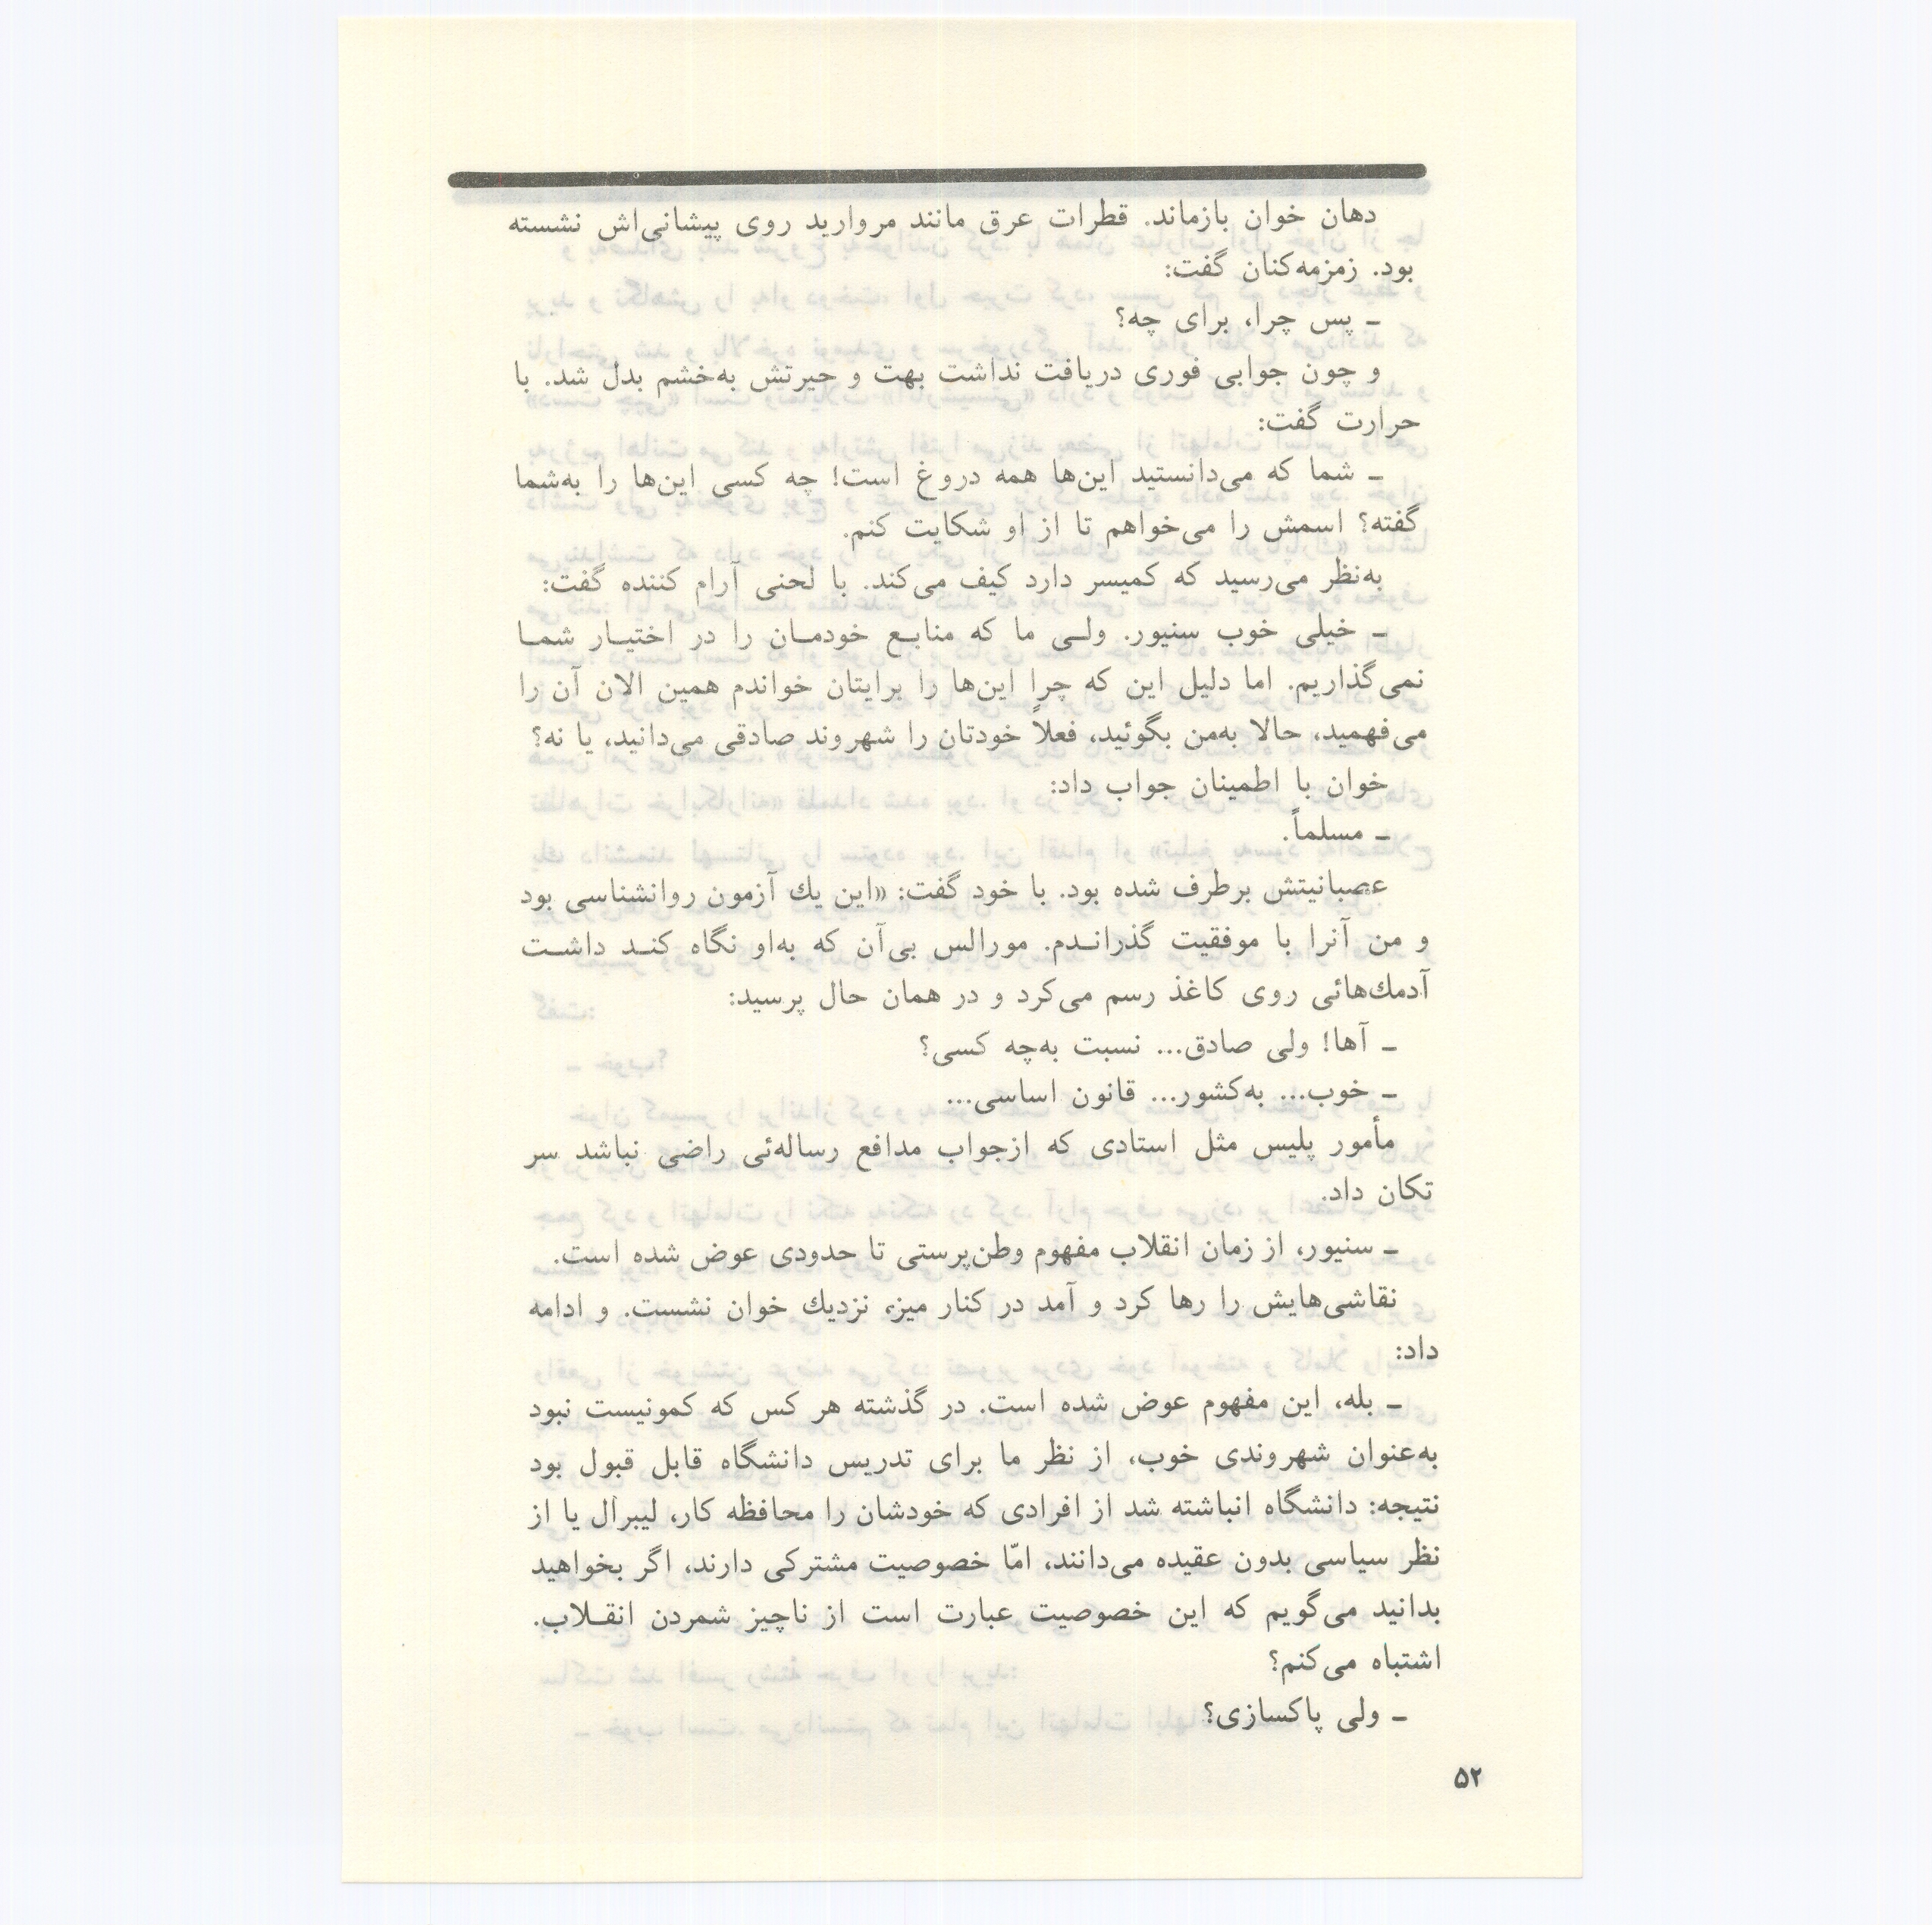 دهان خوان بازماند. قطرات عرق مانند مروارید روی پیشانی‌اش نشسته
بود. زمزمه‌کنان گفت:
ـ پس چرا، برای چه؟
و چون جوابی فوری دریافت نداشت بهت و حیرتش به‌خشم بدل شد. با
حرارت گفت:
ـ شما که می‌دانستید این‌ها همه دروغ است! چه کسی این‌ها را به‌شما
گفته؟ اسمش را می‌خواهم تا از او شکایت کنم.
به‌نظر می‌رسید که کمیسر دارد کیف می‌کند. با لحنی آرام کننده گفت:
ـ خیلی خوب سنیور. ولی ما که منابع خودمان را در اختیار شما
نمی‌گذاریم. اما دلیل این که چرا این‌ها را برایتان خواندم همین الان آن را
می‌فهمید، حالا به‌من بگوئید، فعلاً خودتان را شهروند صادقی می‌دانید، یا نه؟
خوان با اطمینان جواب داد:
ـ مسلماً.
عصبانیتش برطرف شده بود. با خود گفت: «این یك آزمون روانشناسی بود
و من آنرا با موفقیت گذراندم. مورالس بی‌آن که به‌او نگاه کند داشت
آدمك‌هائی روی کاغذ رسم می‌کرد و در همان حال پرسید:
ـ آها! ولی صادق... نسبت به‌چه کسی؟
ـ خوب... به‌کشور... قانون اساسی...
مأمور پلیس مثل استادی که ازجواب مدافع رساله‌ئی راضی نباشد سر
تکان داد.
ـ سنیور، از زمان انقلاب مفهوم وطن‌پرستی تا حدودی عوض شده است.
نقاشی‌هایش را رها کرد و آمد در کنار میز، نزدیك خوان نشست. و ادامه
داد:
ـ بله، این مفهوم عوض شده است. در گذشته هر کس که کمونیست نبود
به‌عنوان شهروندی خوب، از نظر ما برای تدریس دانشگاه قابل قبول بود
نتیجه: دانشگاه انباشته شد از افرادی که خودشان را محافظه کار، لیبرال یا از
نظر سیاسی بدون عقیده می‌دانند، امّا خصوصیت مشترکی دارند، اگر بخواهید
بدانید می‌گویم که این خصوصیت عبارت است از ناچیز شمردن انقلاب.
اشتباه می‌کنم؟
ـ ولی پاکسازی؟
۵۲